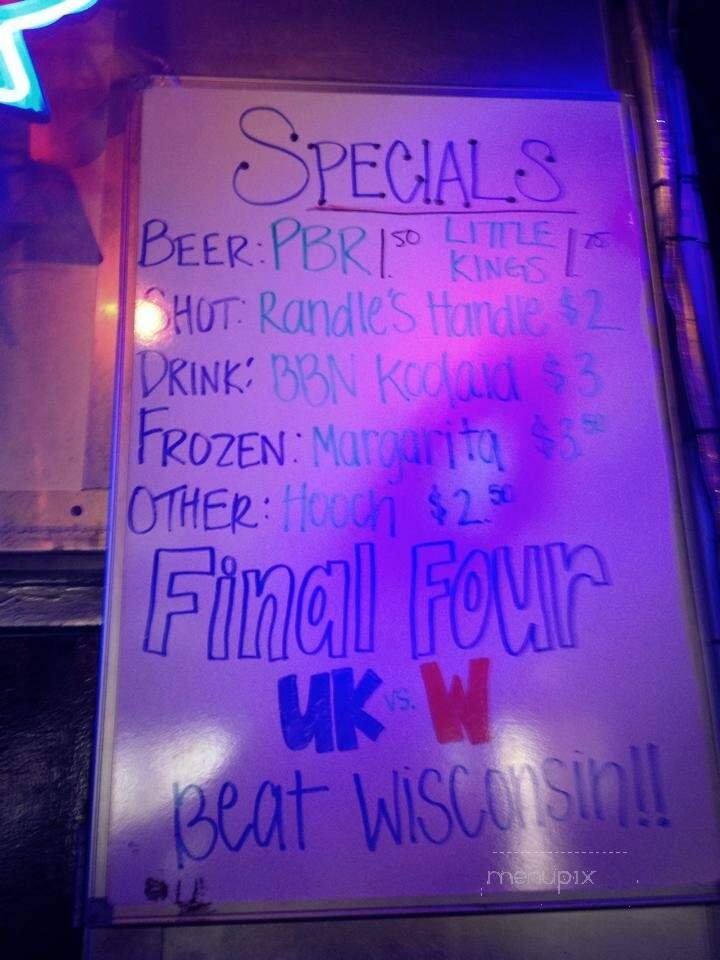 SPECIALS
BEER: PBR 1.50 LITTLE KINGS 1.75
SHOT: Randle's Handle $2
DRINK: BBN Koolaid $3
FROZEN: Margarita $3.50
OTHER: Hooch $2.50
Final Four
UK vs. W
Beat Wisconsin!!
menupix